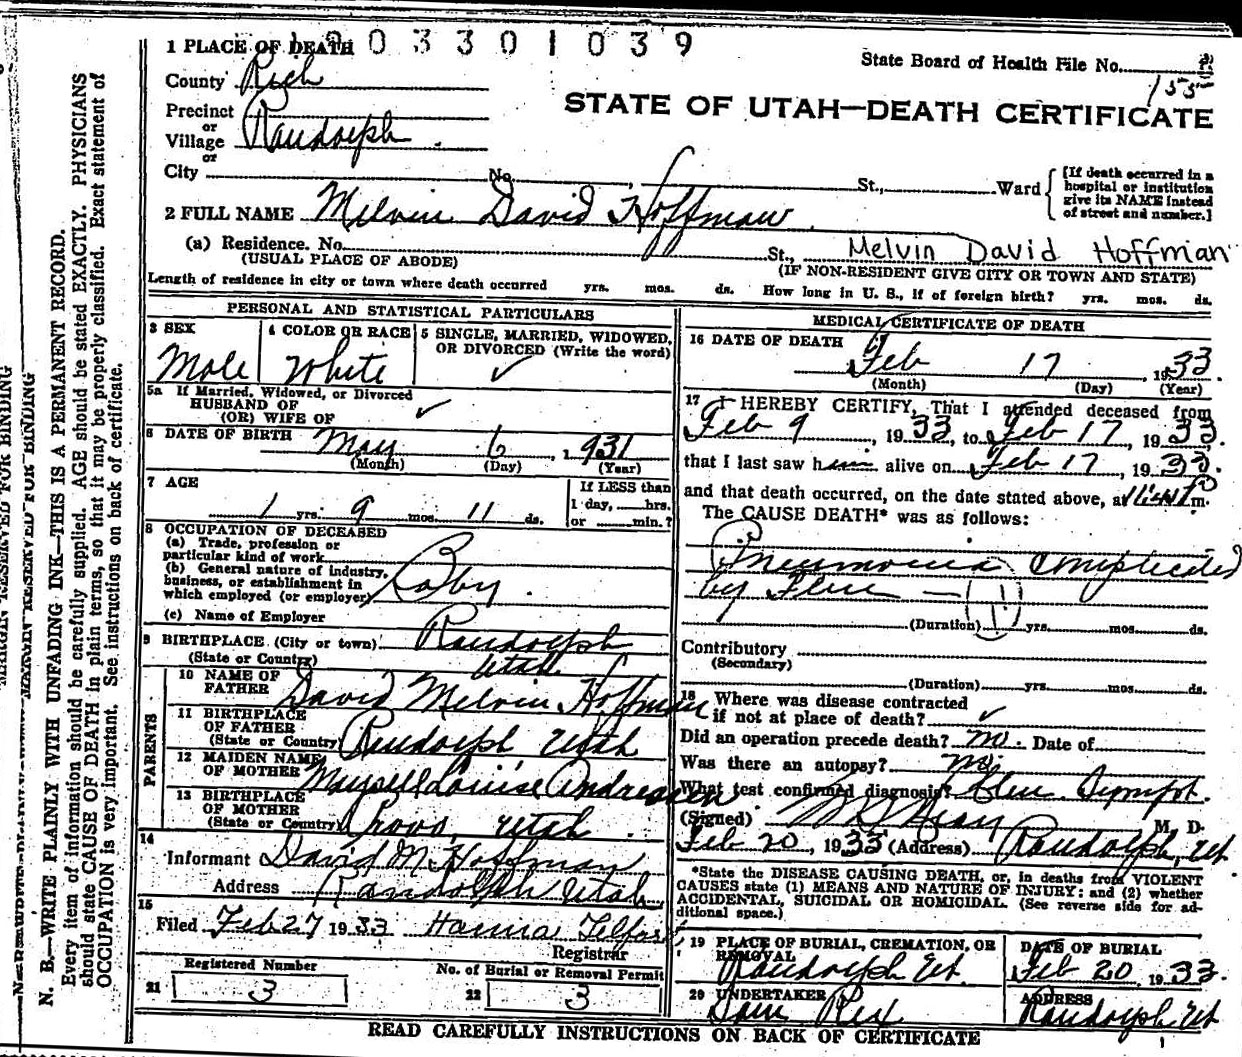 1 PLACE OF DEATH
1 0 0 3 3 0 1 0 3 9
State Board of Health File No.
155
County Rich
STATE OF UTAH—DEATH CERTIFICATE
Precinct
or
Village Randolph
or
City No. St., Ward
[If death occurred in a
hospital or institution
give its NAME instead
of street and number.]
2 FULL NAME Melvin David Hoffman
(a) Residence. No. St., Melvin David Hoffman
(USUAL PLACE OF ABODE) (IF NON-RESIDENT GIVE CITY OR TOWN AND STATE)
Length of residence in city or town where death occurred yrs. mos. ds. How long in U. S., if of foreign birth? yrs. mos. ds.
PERSONAL AND STATISTICAL PARTICULARS
3 SEX Male
4 COLOR OR RACE White
5 SINGLE, MARRIED, WIDOWED,
OR DIVORCED (Write the word)
✓
5a If Married, Widowed, or Divorced
HUSBAND OF
(OR) WIFE OF ✓
6 DATE OF BIRTH May 6, 1931
(Month) (Day) (Year)
7 AGE
1 yrs. 9 mos. 11 ds.
If LESS than
1 day, hrs.
or min.?
8 OCCUPATION OF DECEASED
(a) Trade, profession or
particular kind of work
(b) General nature of industry,
business, or establishment in
which employed (or employer)
Baby
(c) Name of Employer
9 BIRTHPLACE (City or town) Randolph
(State or Country) Utah
PARENTS
10 NAME OF
FATHER David Melvin Hoffman
11 BIRTHPLACE
OF FATHER
(State or Country) Randolph Utah
12 MAIDEN NAME
OF MOTHER Louise Andreasen
13 BIRTHPLACE
OF MOTHER
(State or Country) Provo, Utah
14
Informant David M. Hoffman
Address Randolph Utah
15
Filed Feb 27 1933 Hanna Telford
Registrar
Registered Number
21 3
No. of Burial or Removal Permit
22 3
MEDICAL CERTIFICATE OF DEATH
16 DATE OF DEATH
Feb 17, 1933.
(Month) (Day) (Year)
17 I HEREBY CERTIFY, That I attended deceased from
Feb 9, 1933, to Feb 17, 1933.
that I last saw him alive on Feb 17, 1933.
and that death occurred, on the date stated above, at m.
The CAUSE DEATH* was as follows:
Pneumonia complicated
by Flu —
(Duration) yrs. mos. ds.
Contributory
(Secondary)
(Duration) yrs. mos. ds.
18 Where was disease contracted
if not at place of death? ✓
Did an operation precede death? no. Date of
Was there an autopsy? no.
What test confirmed diagnosis? Clin. Sympt.
(Signed) M. D.
Feb 20, 1933 (Address) Randolph, Ut
*State the DISEASE CAUSING DEATH, or, in deaths from VIOLENT
CAUSES state (1) MEANS AND NATURE OF INJURY; and (2) whether
ACCIDENTAL, SUICIDAL OR HOMICIDAL. (See reverse side for ad-
ditional space.)
19 PLACE OF BURIAL, CREMATION, OR
REMOVAL
Randolph Ut.
DATE OF BURIAL
Feb 20, 1933.
20 UNDERTAKER
Sam Rex
ADDRESS
Randolph, Ut
READ CAREFULLY INSTRUCTIONS ON BACK OF CERTIFICATE
MARGIN RESERVED FOR BINDING
N. B.—WRITE PLAINLY WITH UNFADING INK—THIS IS A PERMANENT RECORD.
Every item of information should be carefully supplied. AGE should be stated EXACTLY. PHYSICIANS
should state CAUSE OF DEATH in plain terms, so that it may be properly classified. Exact statement of
OCCUPATION is very important. See instructions on back of certificate.